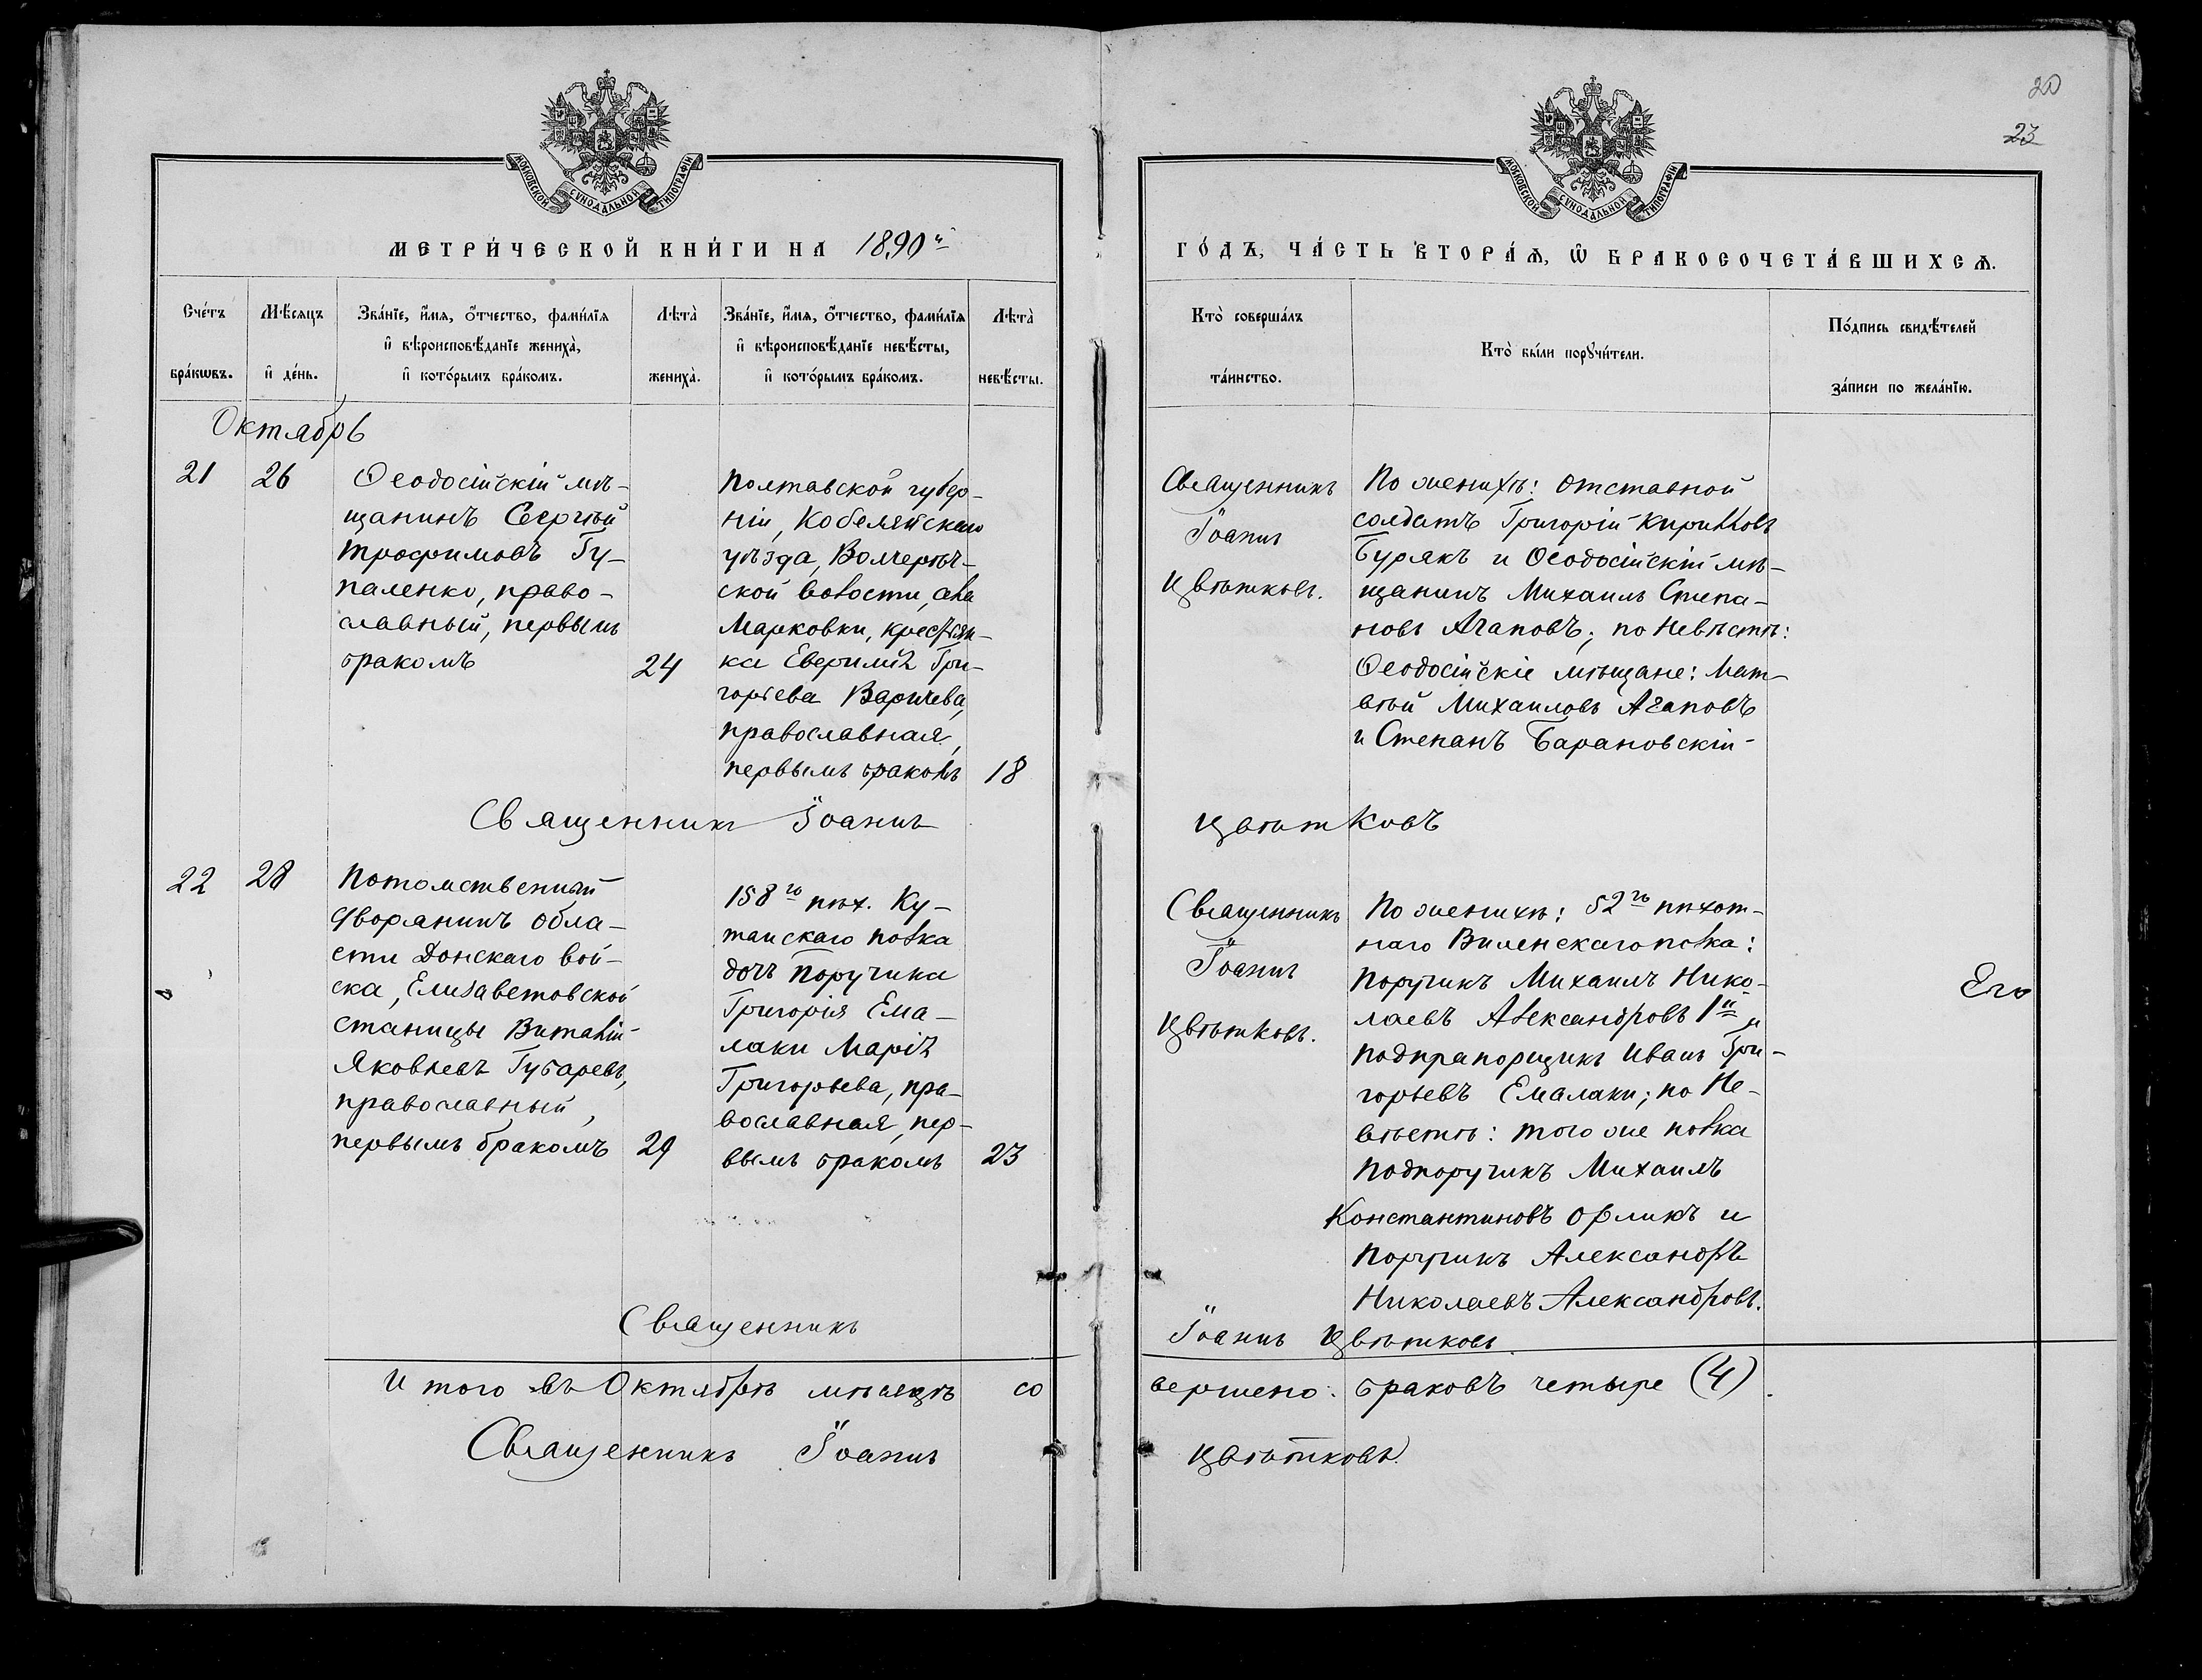 20
23
МОСКОВСКОЙ СѴНОДАЛЬНОЙ ТИПОГРАФІИ
МОСКОВСКОЙ СѴНОДАЛЬНОЙ ТИПОГРАФІИ
МЕТРИ́ЧЕСКОЙ КНИ́ГИ НА 1890й
ГО́ДЪ, ЧА́СТЬ ВТОРА́Ѧ, Ѿ БРАКОСОЧЕТА́ВШИХСѦ.
Сче́тъ
бра́кѡвъ.
Мѣ́сяцъ
и҆ де́нь.
Зва́нїе, и҆́мѧ, ѻ҆́тчество, фами́лїѧ
и҆ вѣроисповѣ́данїе жениха̀,
и҆ кото́рымъ бра́комъ.
Лѣта̀
жениха̀.
Зва́нїе, и҆́мѧ, ѻ҆́тчество, фами́лїѧ
и҆ вѣроисповѣ́данїе невѣ́сты,
и҆ кото́рымъ бра́комъ.
Лѣта̀
невѣ́сты.
Кто̀ соверша́лъ
та́инство.
Кто̀ бы́ли порꙋчи́тели.
По́дпись свидѣ́телей
за́писи по жела́нїю.
Октябрь
21
26
Ѳеодосійскій мѣ-
щанинъ Сергѣй
Трофимовъ Гу-
паленко, право-
славный, первымъ
бракомъ
24
Полтавской губер-
ніи, Кобелякскаго
уѣзда,
ской волости, села
Марковки, крестьян-
ка Евфимія Гри-
горьева
православная,
первымъ бракомъ
18
Священникъ
Іоаннъ
Цвѣтковъ.
По женихѣ: отставной
солдатъ Григорій Кирилловъ
Бурякъ и Ѳеодосійскій мѣ-
щанинъ Михаилъ Степа-
новъ Агаповъ; по Невѣстѣ:
Ѳеодосійскіе мѣщане: Мат-
вѣй Михаиловъ Агаповъ
и Степанъ Барановскій
Священникъ Іоаннъ Цвѣтковъ
22
28
Потомственный
дворянинъ Обла-
сти Донскаго вой-
ска, Елисаветовской
станицы Виталій
Яковлевъ Губаревъ,
православный,
первымъ бракомъ
29
158го пѣх. Ку-
таискаго полка
дочь Поручика
Григорія Ема-
лаки Марія
Григорьева, пра-
вославная, пер-
вымъ бракомъ
23
Священникъ
Іоаннъ
Цвѣтковъ.
По женихѣ: 52го пѣхот-
наго Виленскаго полка:
Поручикъ Михаилъ Нико-
лаевъ Александровъ 1й и
подпрапорщикъ Иванъ Гри-
горьевъ Емалаки; по Не-
вѣстѣ: того же полка
Подпоручикъ Михаилъ
Константиновъ Орликъ и
Поручикъ Александръ
Николаевъ Александровъ.
Его
Священникъ Іоаннъ Цвѣтковъ.
И того въ Октябрѣ мѣсяцѣ совершено: браковъ четыре (4).
Священникъ Іоаннъ Цвѣтковъ.